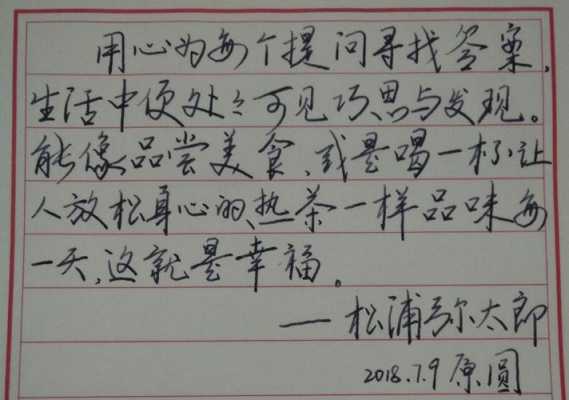 用心为每个提问寻找答案,
生活中便处处可见巧思与发现。
能像品尝美食、或是喝一杯让
人放松身心的热茶一样品味每
一天,这就是幸福。
——松浦弥太郎
2018.7.9 原圆